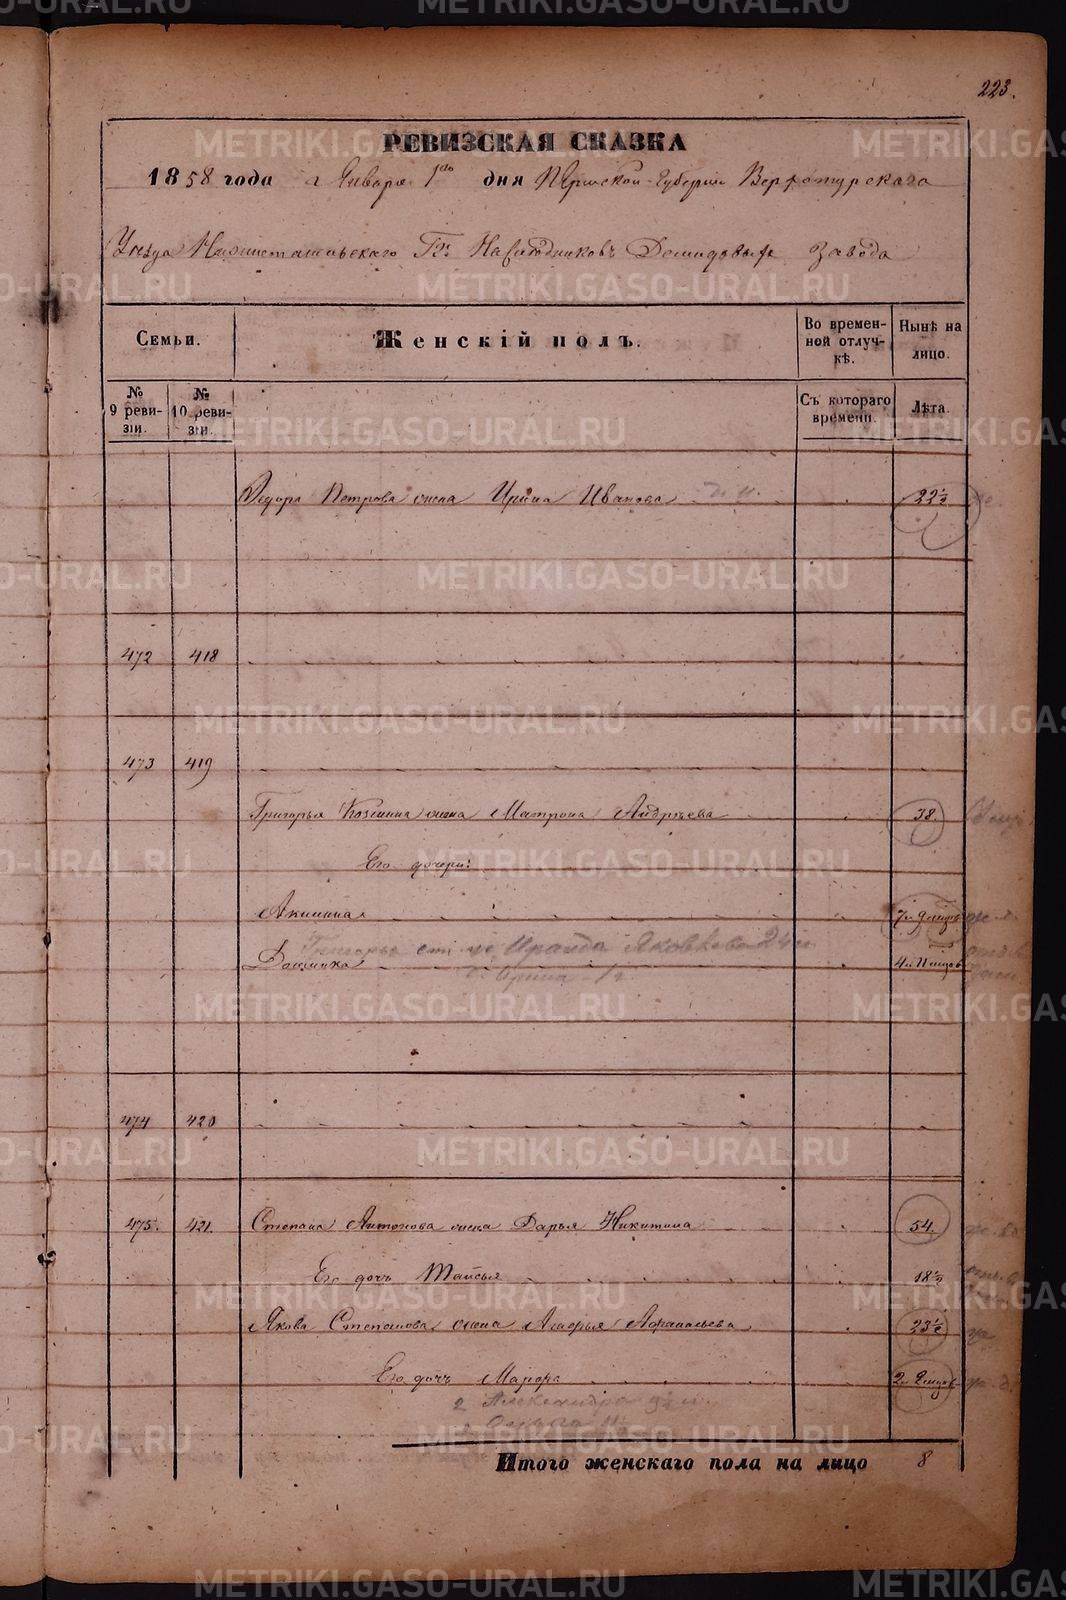 223.
РЕВИЗСКАЯ СКАЗКА
1858 года Января 1го дня Пермской Губернии Верхотурскаго
Уезда Нижнетагильскаго Гг. Наследниковъ Демидовыхъ завода
Семьи.
Женскій полъ.
Во времен-
ной отлуч-
кѣ.
Нынѣ на
лицо.
№
9 реви-
зіи.
№
10 реви-
зіи.
Съ котораго
времени.
Лѣта.
Федора Петрова жена Ирина Иванова 22½
472 418
473 419
Григорья Козмина жена Матрона Андрѣева 38.
Его дочери:
Акилина 7 и 9 мцовъ
Григорья жена Ираида Яковлева 24
Домника 4 и 11 мцовъ
Ирина 1 г
474 420
475. 421. Степана Антонова жена Дарья Никитина 54.
Его дочь Таисья 18½
Якова Степанова жена Агафья Афанасьева 23½
Его дочь Марфа
2 Александра 9½
Ольга
Итого женскаго пола на лицо 8
METRIKI.GASO-URAL.RU